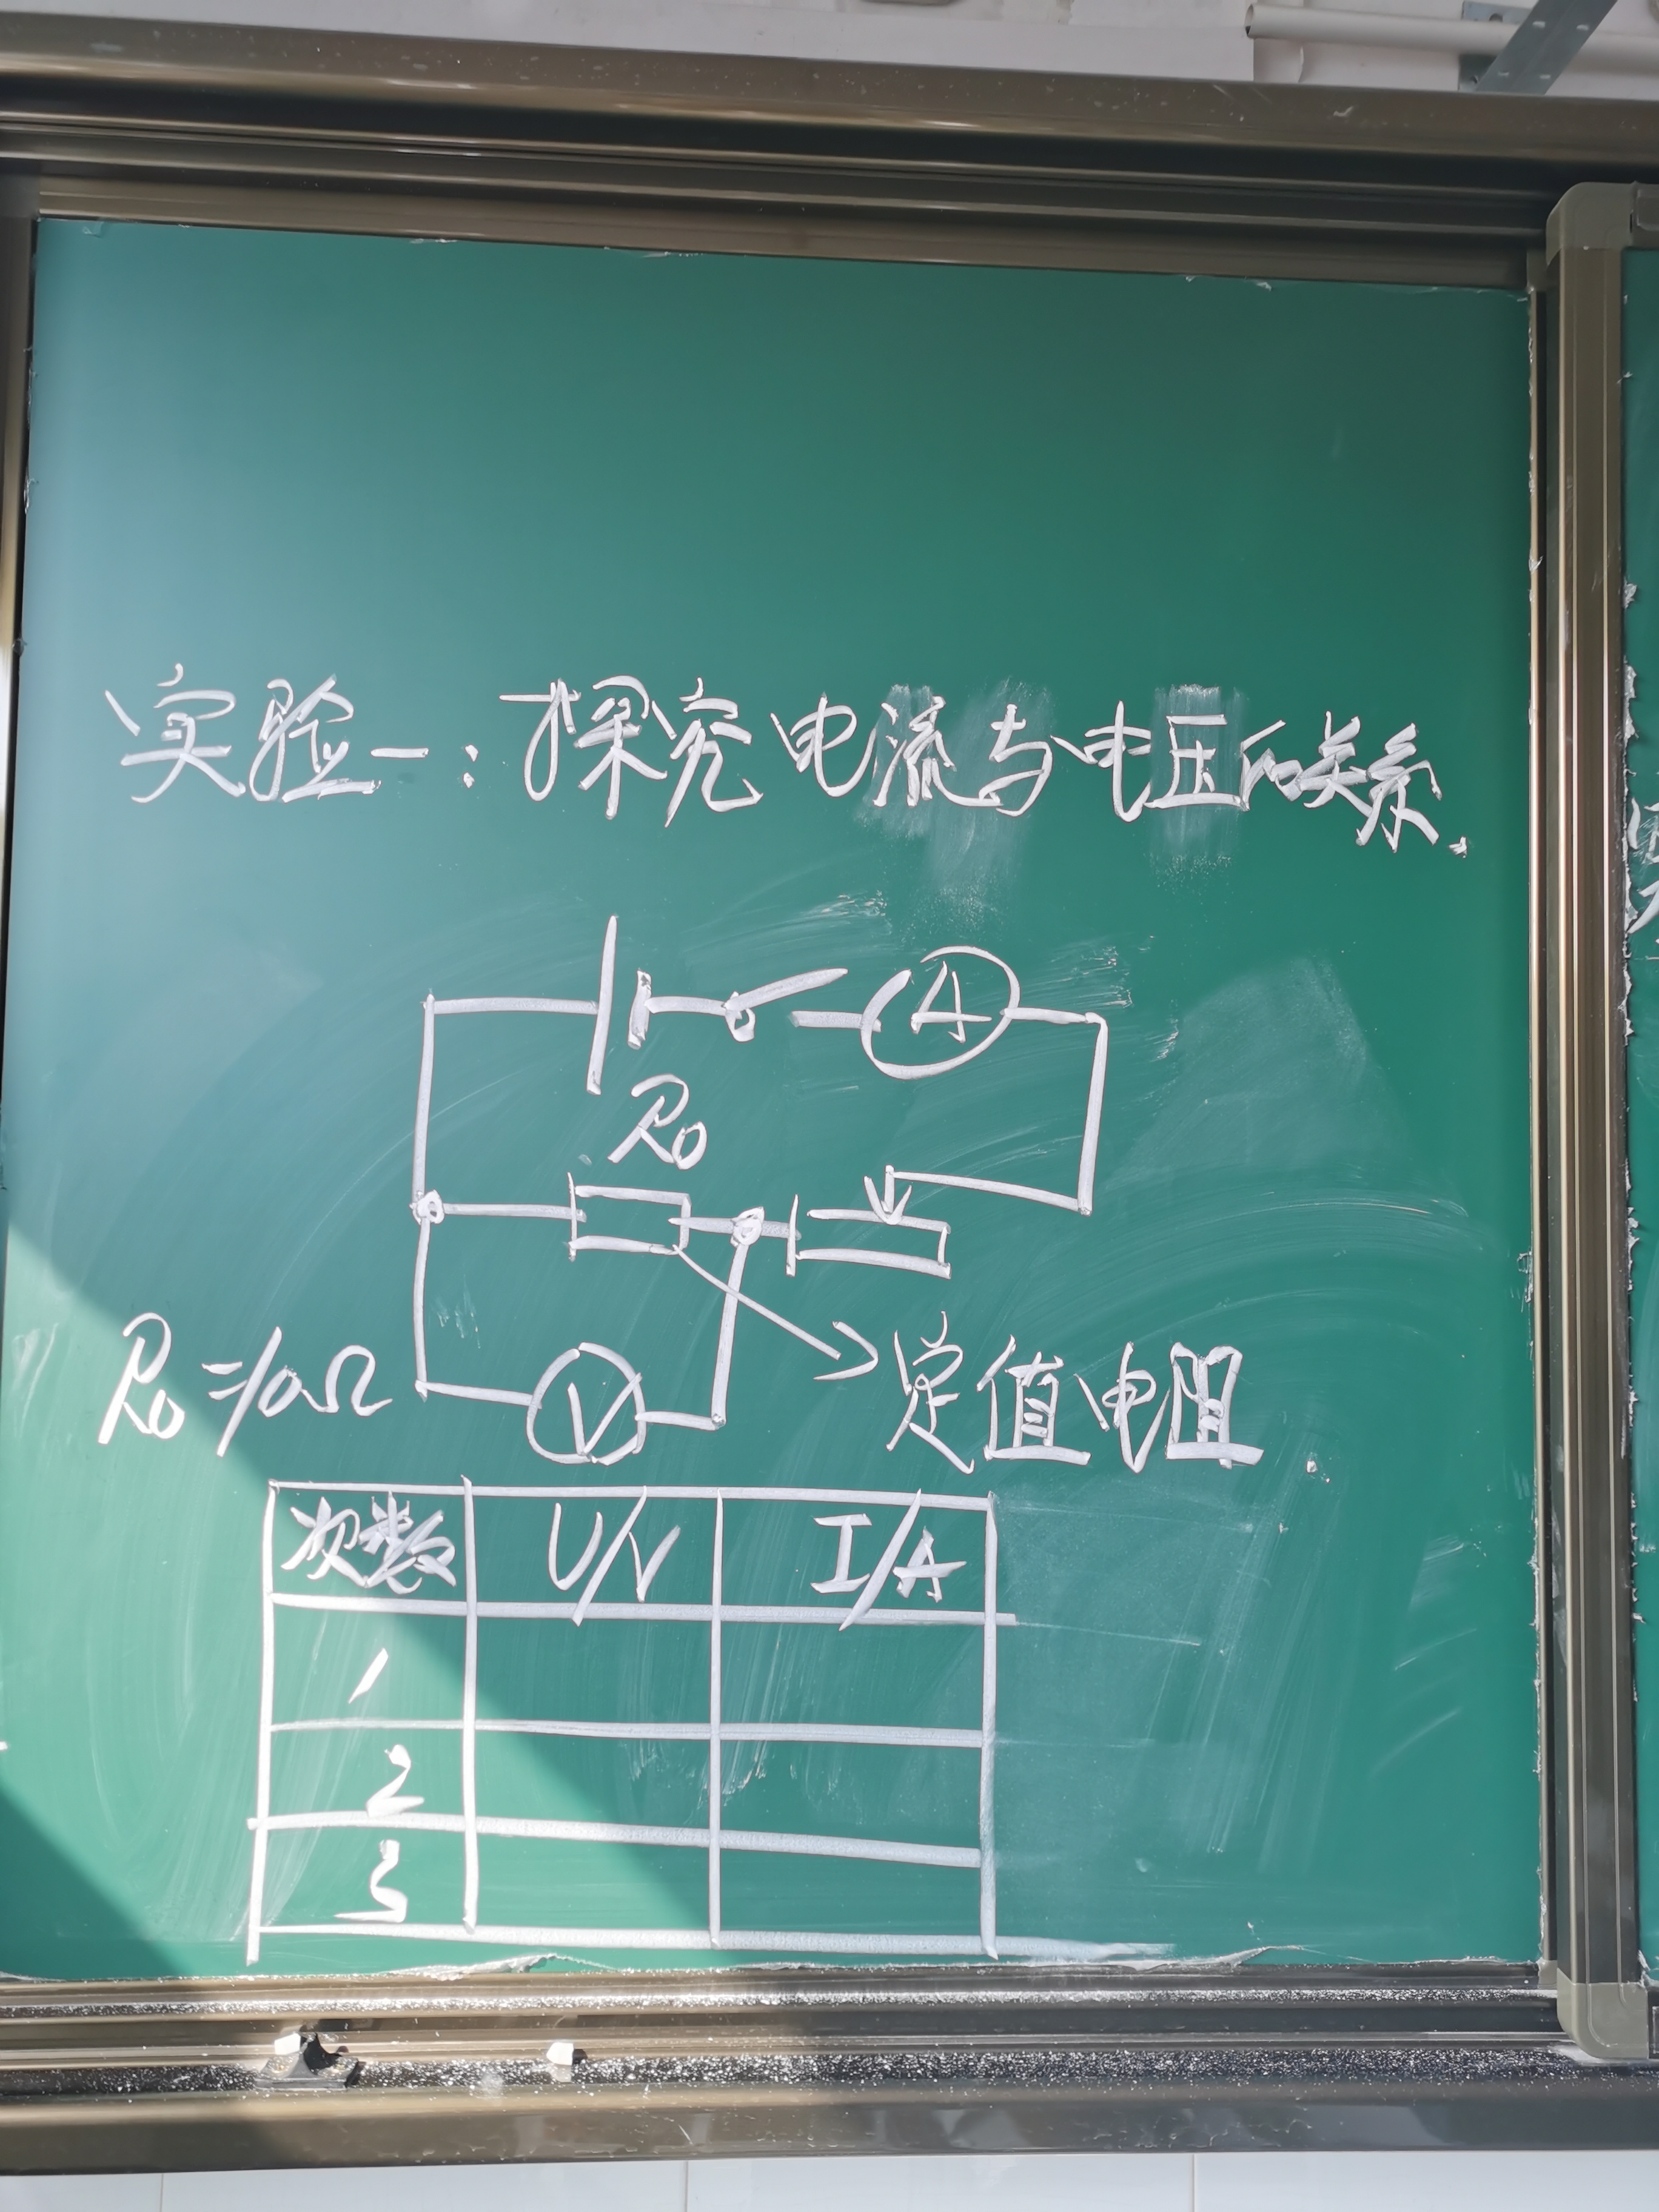 实验一:探究电流与电压的关系.
A
R0
R0=10Ω
V
定值电阻.
次数 U/V I/A
1
2
3